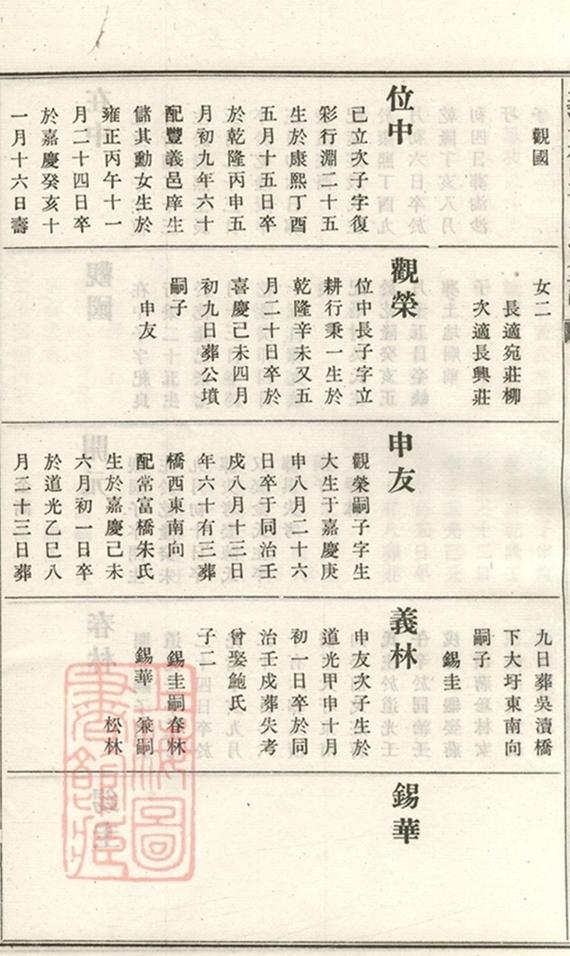 觀國
位中
已立次子字復
彩行淵二十五
生於康熙丁酉
五月十五日卒
於乾隆丙申五
月初九年六十
配豐義邑庠生
儲其勳女生於
雍正丙午十一
月二十四日卒
於嘉慶癸亥十
一月十六日壽
女二
長適宛莊柳
次適長興莊
觀榮
位中長子字立
耕行秉一生於
乾隆辛未又五
月二十日卒於
喜慶己未四月
初九日葬公墳
嗣子
申友
申友
觀榮嗣子字生
大生于嘉慶庚
申八月二十六
日卒于同治壬
戌八月十三日
年六十有三葬
橋西東南向
配常富橋朱氏
生於嘉慶己未
六月初一日卒
於道光乙巳八
月二十三日葬
九日葬吳瀆橋
下大圩東南向
嗣子
錫圭
義林
申友次子生於
道光甲申十月
初一日卒於同
治壬戌葬失考
曾娶鮑氏
子二
錫圭嗣春林
錫華 兼嗣
松林
錫華